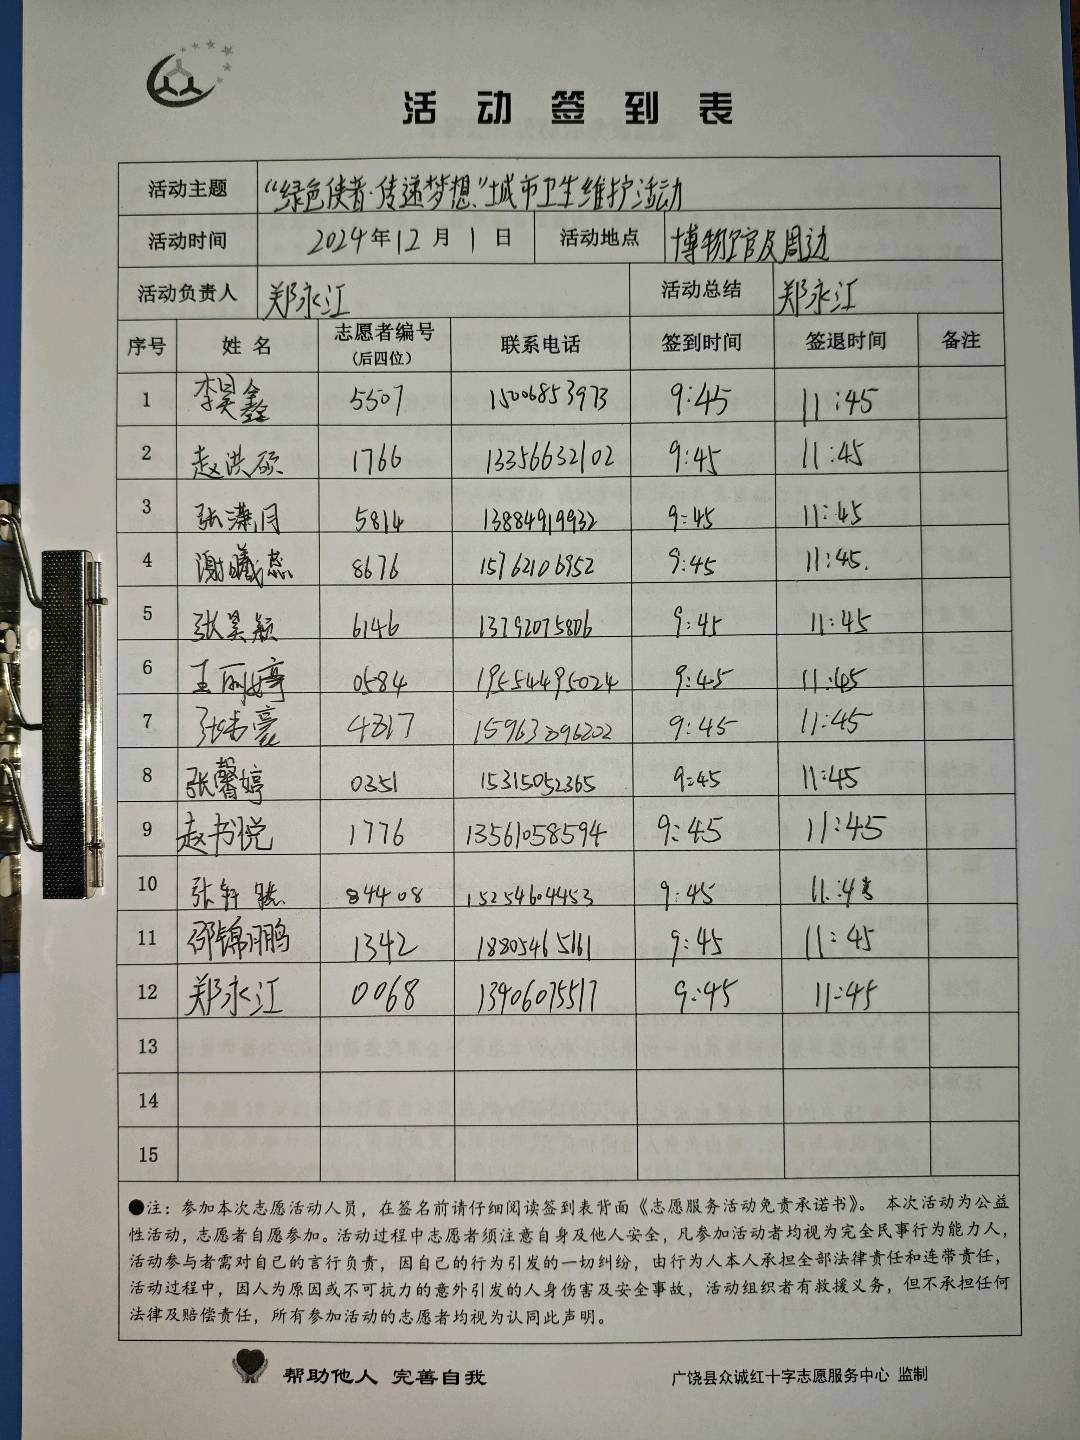 活动签到表
活动主题 “绿色使者·传递梦想”城市卫生维护活动
活动时间 2024年12月1日 活动地点 博物馆及周边
活动负责人 郑永江 活动总结 郑永江
序号 姓名 志愿者编号(后四位) 联系电话 签到时间 签退时间 备注
1 李昊鑫 5507 15006853973 9:45 11:45
2 赵洪硕 1766 13356632102 9:45 11:45
3 张潇月 5814 13884919932 9:45 11:45
4 谢曦蕊 8676 15762106952 9:45 11:45.
5 张昊颖 6146 13792075806 9:45 11:45
6 王丽婷 0584 19554495024 9:45 11:45
7 9:45 11:45
8 张馨婷 0351 15315052365 9:45 11:45
9 赵书悦 1776 13561058594 9:45 11:45
10 张轩 15254604453 9:45 11:45
11 邵锦鹏 1342 18805465161 9:45 11:45
12 郑永江 0068 13406075517 9:45 11:45
13
14
15
●注：参加本次志愿活动人员，在签名前请仔细阅读签到表背面《志愿服务活动免责承诺书》。 本次活动为公益
性活动，志愿者自愿参加。活动过程中志愿者须注意自身及他人安全，凡参加活动者均视为完全民事行为能力人，
活动参与者需对自己的言行负责，因自己的行为引发的一切纠纷，由行为人本人承担全部法律责任和连带责任，
活动过程中，因人为原因或不可抗力的意外引发的人身伤害及安全事故，活动组织者有救援义务，但不承担任何
法律及赔偿责任，所有参加活动的志愿者均视为认同此声明。
帮助他人 完善自我 广饶县众诚红十字志愿服务中心 监制